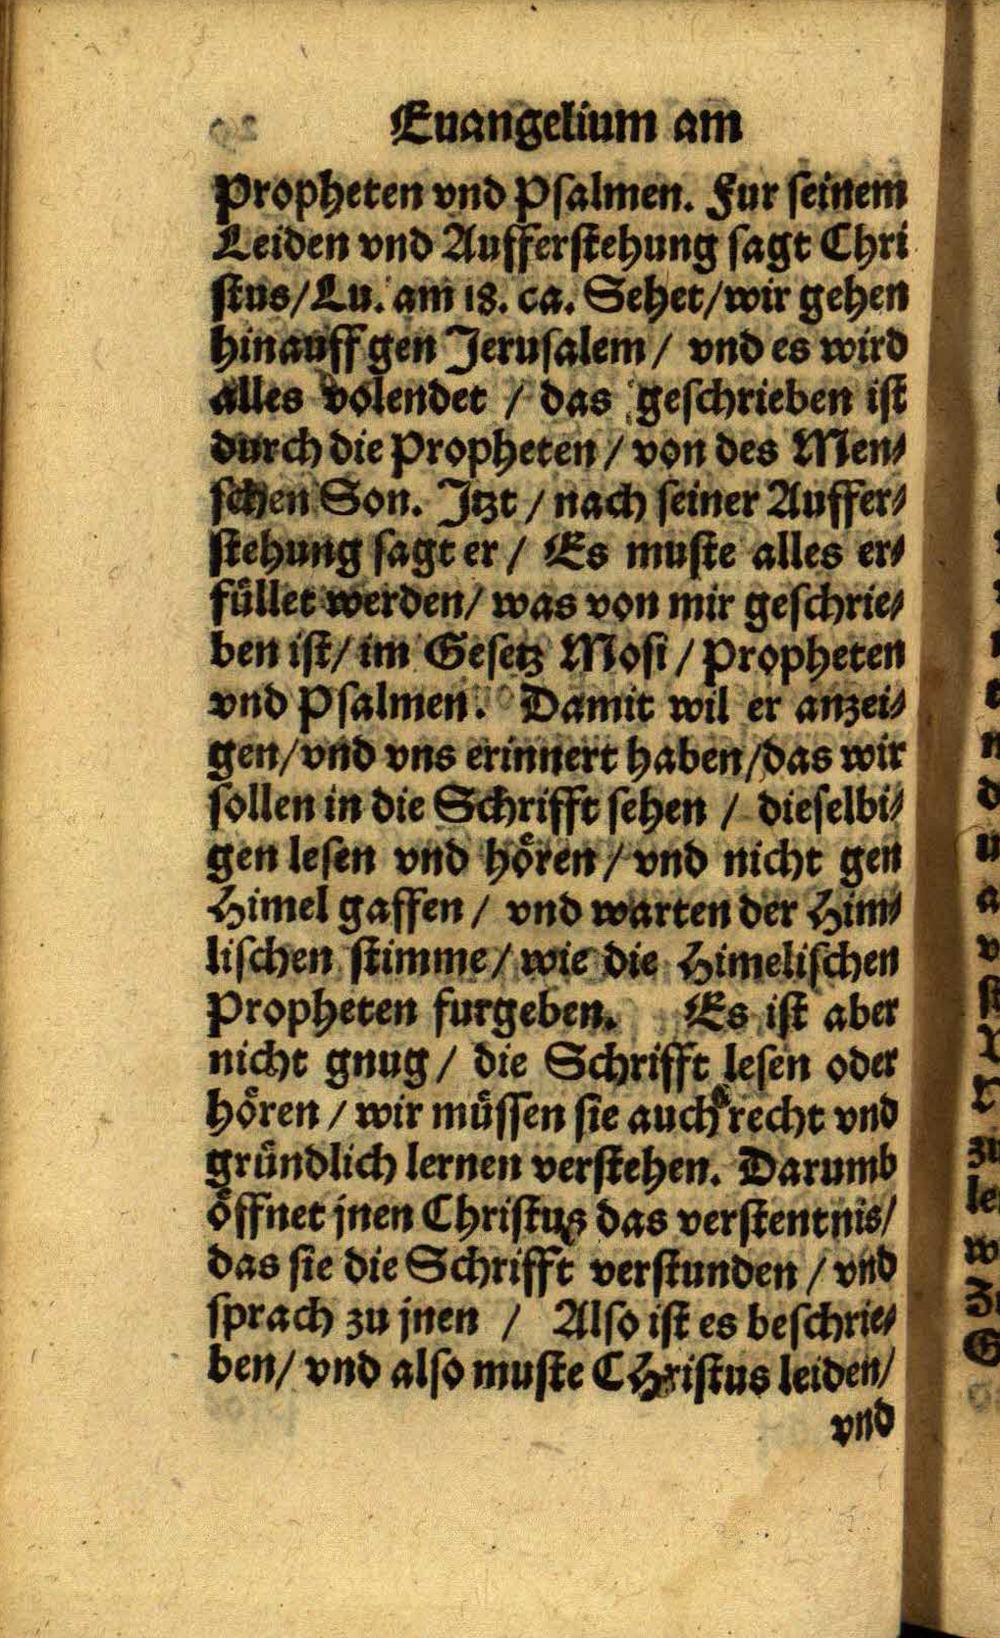 Euangelium am
Propheten vnd Psalmen. Fur seinem
Leiden vnd Aufferstehung sagt Chri
stus/ Lu. am 18. ca. Sehet/ wir gehen
hinauff gen Jerusalem / vnd es wird
alles volendet / das geschrieben ist
durch die Propheten / von des Men⸗
schen Son. Jtzt / nach seiner Auffer⸗
stehung sagt er / Es muste alles er⸗
füllet werden/ was von mir geschrie⸗
ben ist/ im Gesetz Mosi / Propheten
vnd Psalmen. Damit wil er anzei⸗
gen/ vnd vns erinnert haben/ das wir
sollen in die Schrifft sehen / dieselbi⸗
gen lesen vnd hören / vnd nicht gen
Himel gaffen / vnd warten der Him⸗
lischen stimme / wie die Himelischen
Propheten furgeben. Es ist aber
nicht gnug / die Schrifft lesen oder
hören / wir müssen sie auch recht vnd
gründlich lernen verstehen. Darumb
öffnet jnen Christus das verstentnis/
das sie die Schrifft verstunden / vnd
sprach zu jnen / Also ist es beschrie⸗
ben/ vnd also muste CHristus leiden/
vnd